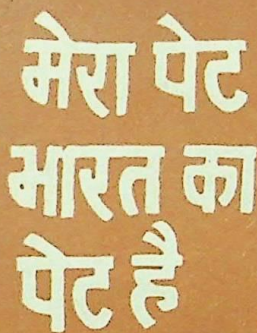 मेरा पेट
भारत का
पेट है